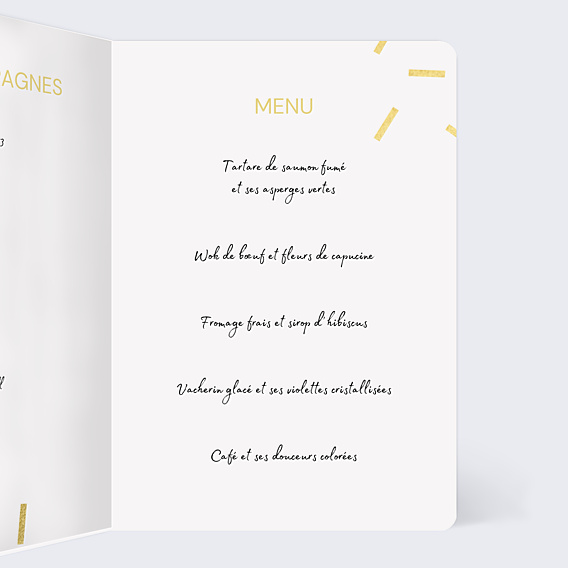 MENU
Tartare de saumon fumé
et ses asperges vertes
Wok de bœuf et fleurs de capucine
Fromage frais et sirop d'hibiscus
Vacherin glacé et ses violettes cristallisées
Café et ses douceurs colorées